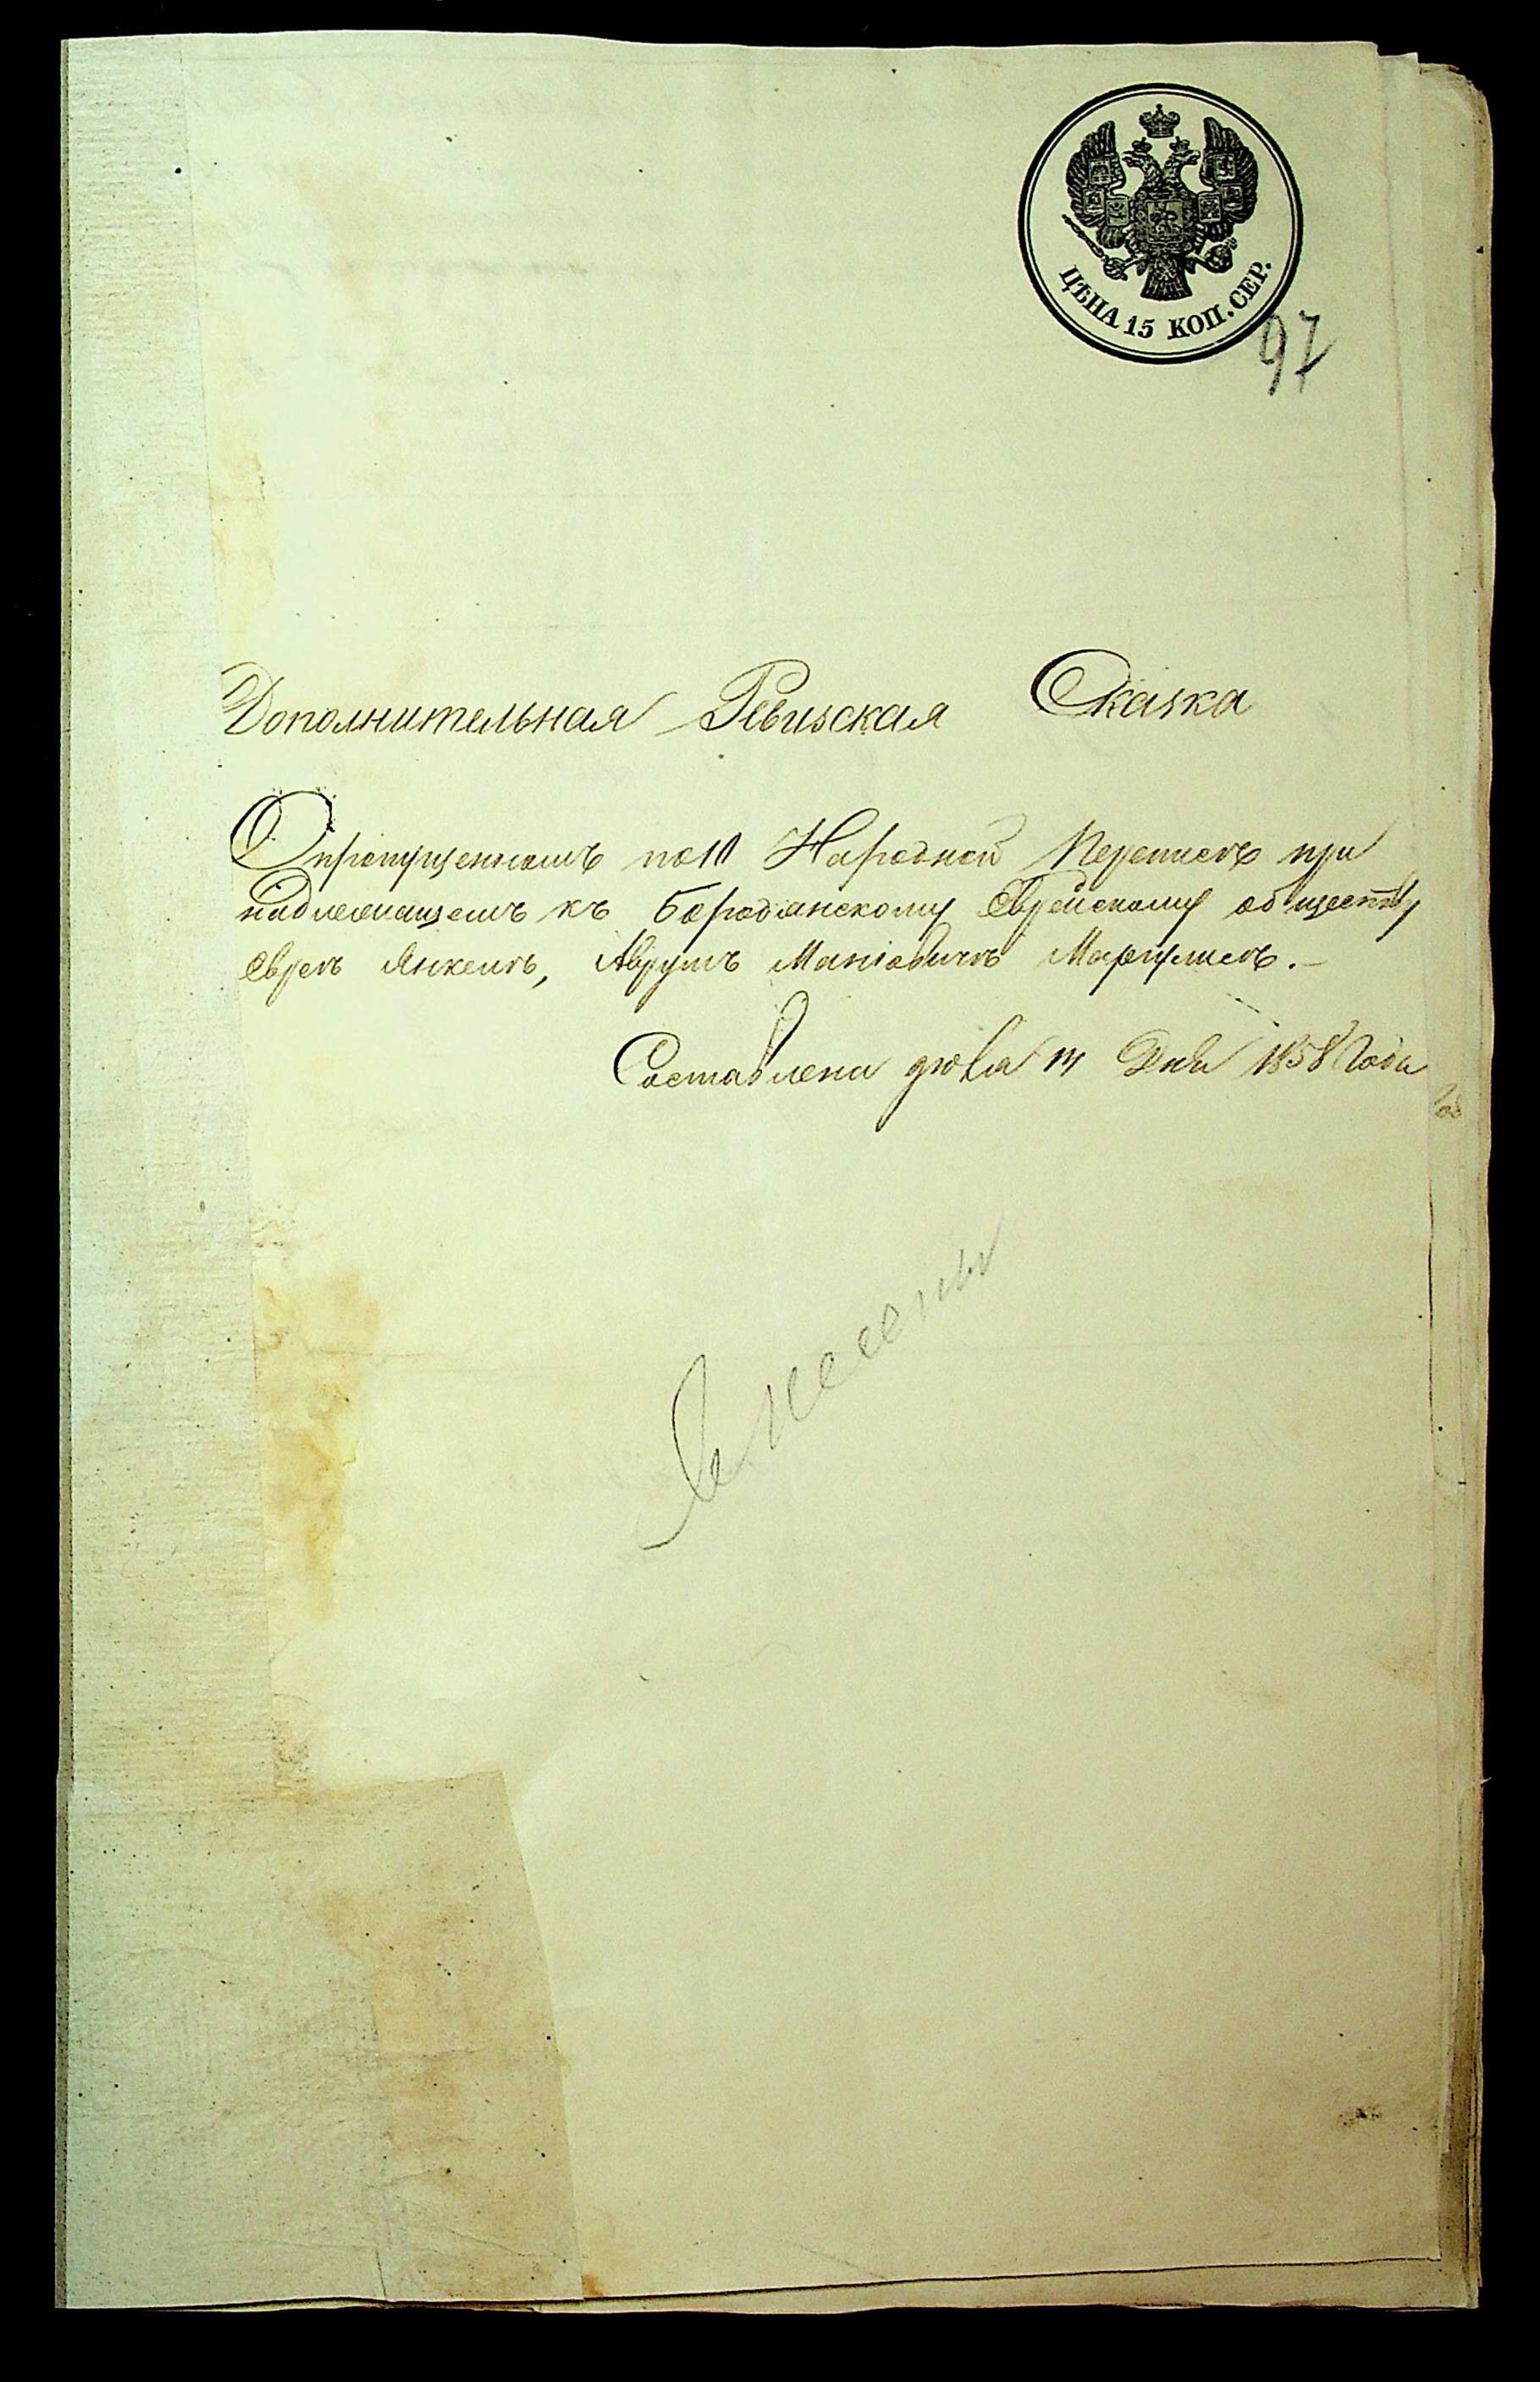 ЦѢНА 15 КОП. СЕР.
97
Дополнительная Ревизская Сказка
О пропущенномъ по 10 Народной Переписѣ при
надлежащемъ къ Бородянскому Еврейскому обществу
Евреѣ Янкелѣ, Аврумъ Маніовичѣ Маргулисѣ. –
Составлена дня 1858 Года